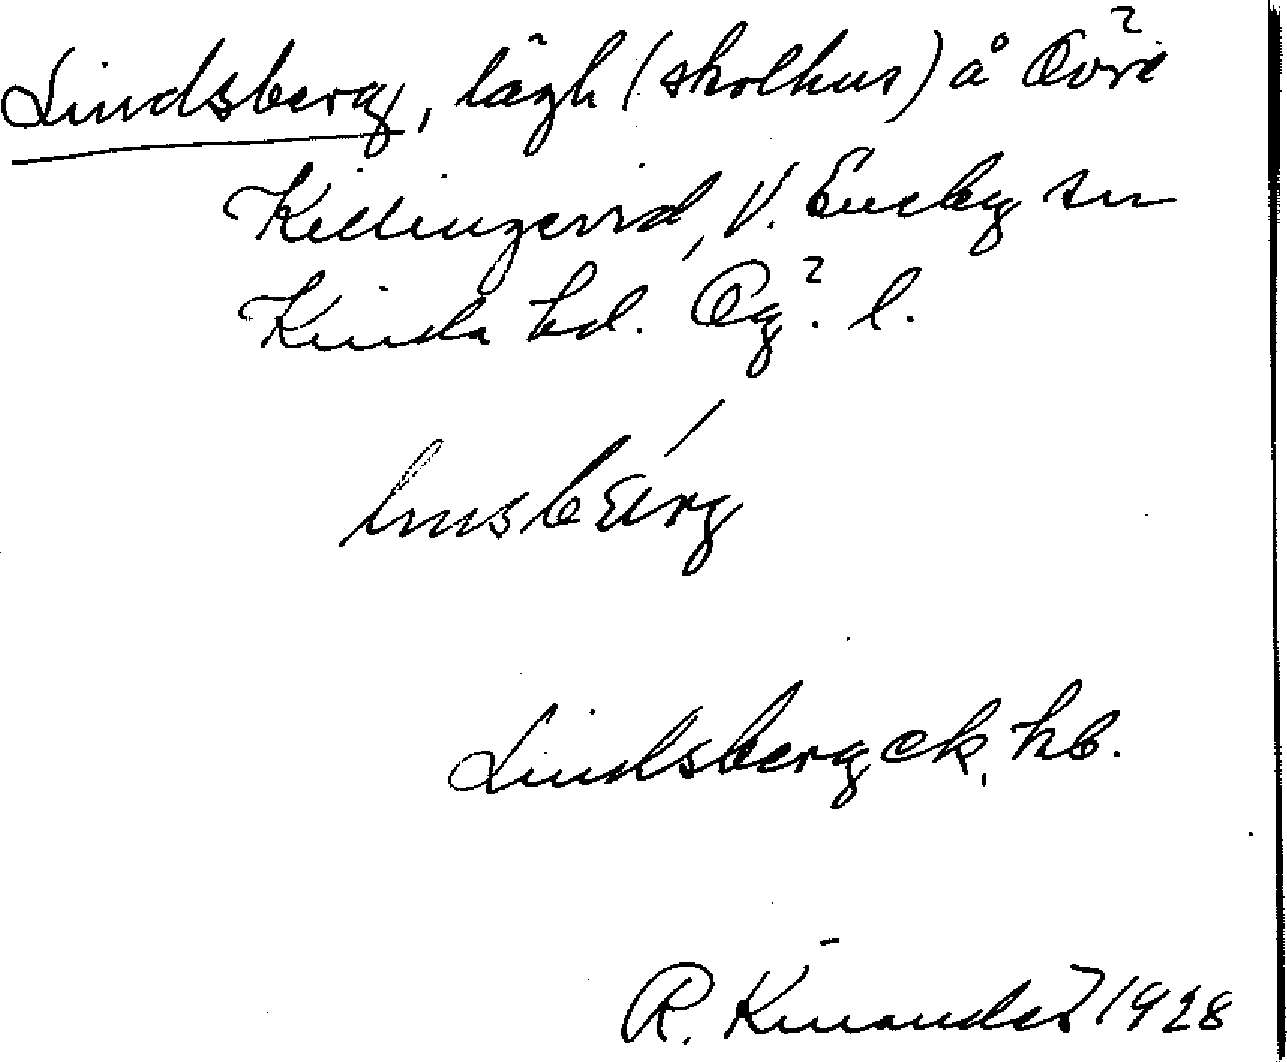 Lindsberg, lägh (skolhus) å Övre
Killingevid, V. Eneby sn
Kinda hd. Ög. l.
Lindsberg ek, hb.
R. Kinander 1928